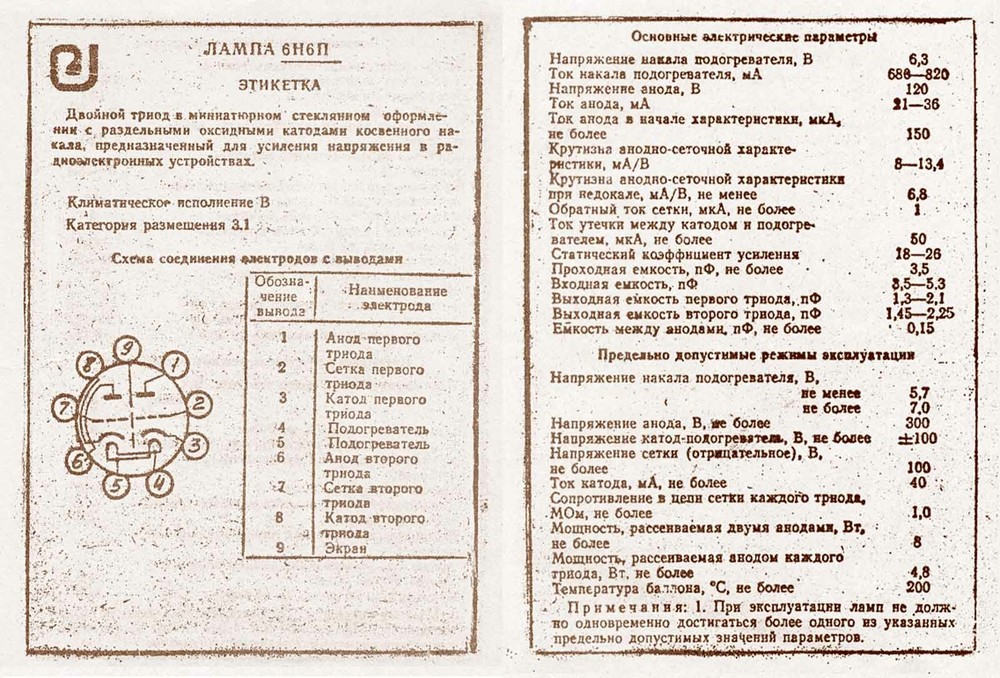 ЛАМПА 6Н6П
ЭТИКЕТКА
Двойной триод в миниатюрном стеклянном оформле-
нии с раздельными оксидными катодами косвенного на-
кала, предназначенный для усиления напряжения в ра-
диоэлектронных устройствах.
Климатическое исполнение В
Категория размещения 3.1
Схема соединения электродов с выводами
Обозна-
чение
вывода
Наименование
электрода
1 Анод первого
триода
2 Сетка первого
триода
3 Катод первого
триода
4 Подогреватель
5 Подогреватель
6 Анод второго
триода
7 Сетка второго
триода
8 Катод второго
триода
9 Экран
9
8 1
7 2
6 3
5 4
Основные электрические параметры
Напряжение накала подогревателя, В 6,3
Ток накала подогревателя, мА 680—820
Напряжение анода, В 120
Ток анода, мА 21—36
Ток анода в начале характеристики, мкА,
не более 150
Крутизна анодно-сеточной характе-
ристики, мА/В 8—13,4
Крутизна анодно-сеточной характеристики
при недокале, мА/В, не менее 6,8
Обратный ток сетки, мкА, не более 1
Ток утечки между катодом и подогре-
вателем, мкА, не более 50
Статический коэффициент усиления 18—26
Проходная емкость, пФ, не более 3,5
Входная емкость, пФ 3,5—5,3
Выходная емкость первого триода, пФ 1,3—2,1
Выходная емкость второго триода, пФ 1,45—2,25
Емкость между анодами, пФ, не более 0,15
Предельно допустимые режимы эксплуатации
Напряжение накала подогревателя, В,
не менее 5,7
не более 7,0
Напряжение анода, В, не более 300
Напряжение катод-подогреватель, В, не более ±100
Напряжение сетки (отрицательное), В,
не более 100
Ток катода, мА, не более 40
Сопротивление в цепи сетки каждого триода,
МОм, не более 1,0
Мощность, рассеиваемая двумя анодами, Вт,
не более 8
Мощность, рассеиваемая анодом каждого
триода, Вт, не более 4,8
Температура баллона, °С, не более 200
Примечания: 1. При эксплуатации ламп не долж-
но одновременно достигаться более одного из указанных
предельно допустимых значений параметров.